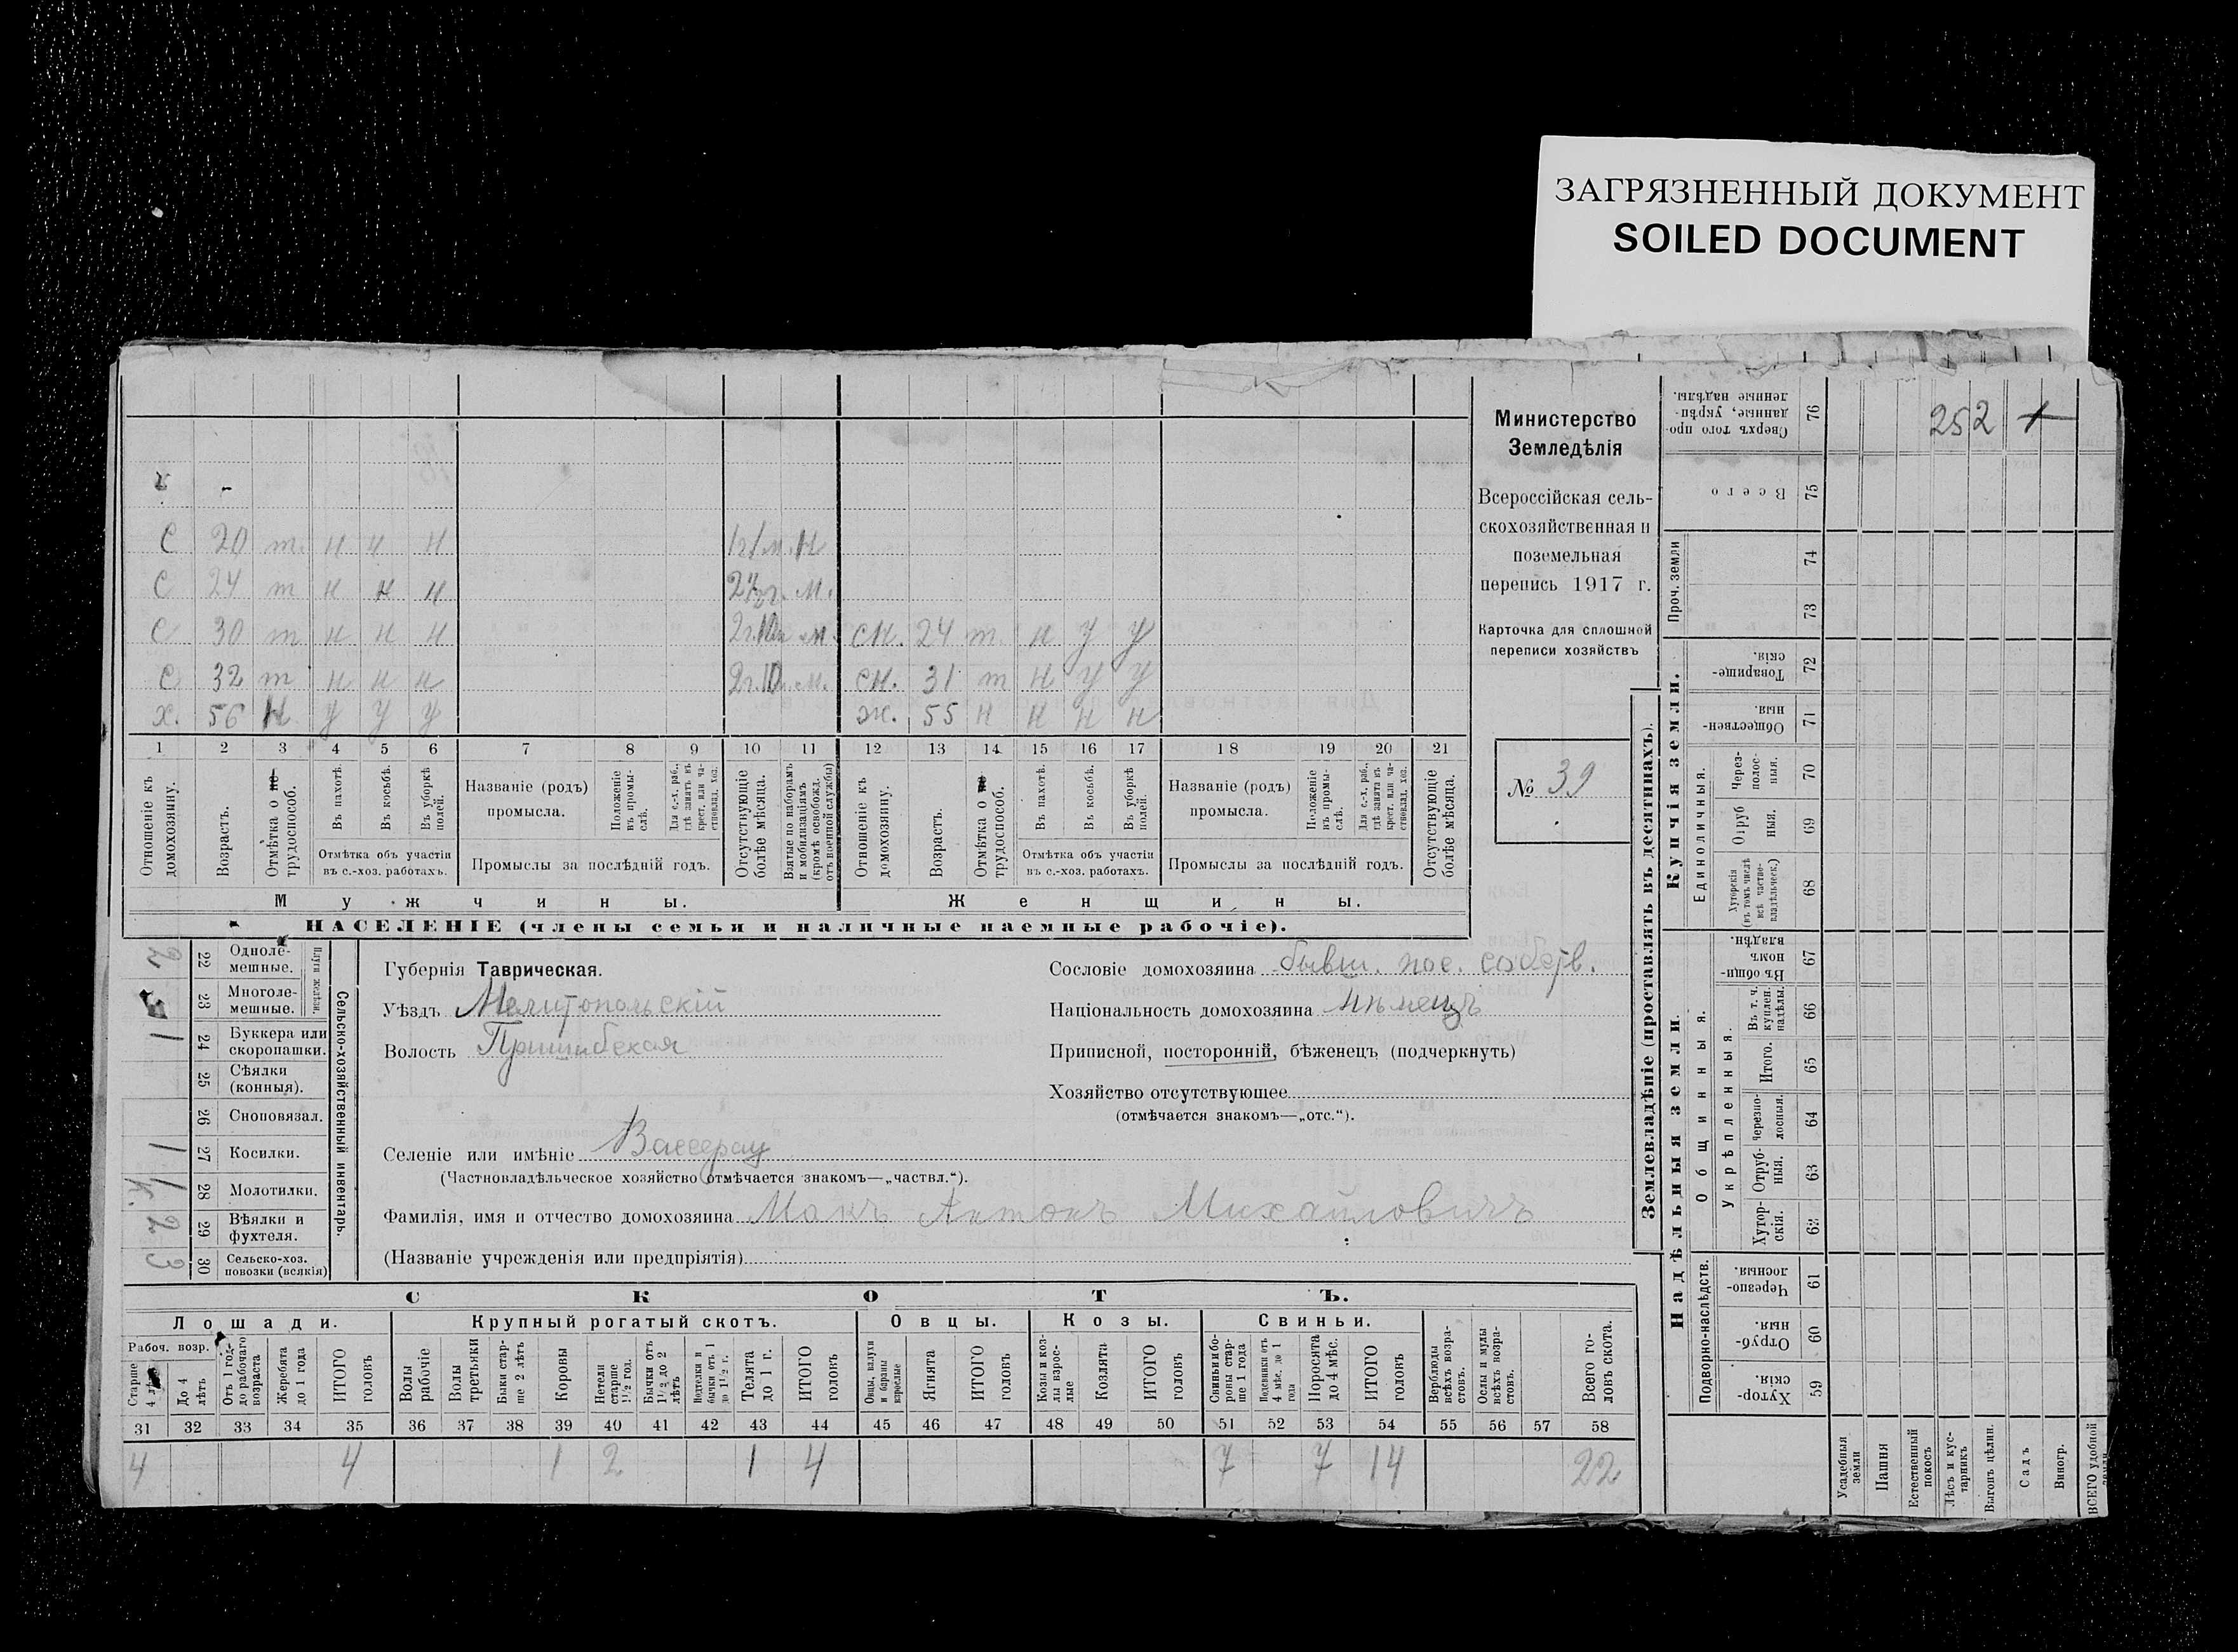 ЗАГРЯЗНЕННЫЙ ДОКУМЕНТ
SOILED DOCUMENT
Министерство
Земледѣлія
Всероссійская сель-
скохозяйственная и
поземельная
перепись 1917 г.
Карточка для сплошной
переписи хозяйствъ
№ 39
С 20 т н н н
С 24 т н н н
С 30 т н н н сн. 24 т н у у
С 32 т н н н сн. 31 т н у у
х. 56 н у у у ж. 55 н н н н
1 2 3 4 5 6 7 8 9 10 11 12 13 14 15 16 17 18 19 20 21
Отношеніе къ домохозяину.
Возрастъ.
Отмѣтка о не трудоспособ.
Въ пахотѣ.
Въ косьбѣ.
Въ уборкѣ полей.
Отмѣтка объ участіи въ с.-хоз. работахъ.
Названіе (родъ) промысла.
Положеніе въ промы-слѣ.
Для с.-х. раб., гдѣ занятъ въ крест. или ча-стновлад. хоз.
Промыслы за послѣдній годъ.
Отсутствующіе болѣе мѣсяца.
Взятые по наборамъ и мобилизаціямъ (кромѣ освобожд. отъ военной службы)
Отношеніе къ домохозяину.
Возрастъ.
Отмѣтка о трудоспособ.
Въ пахотѣ.
Въ косьбѣ.
Въ уборкѣ полей.
Отмѣтка объ участіи въ с.-хоз. работахъ.
Названіе (родъ) промысла.
Положеніе въ промы-слѣ.
Для с.-х. раб., гдѣ занята въ крест. или ча-стновлад. хоз.
Промыслы за послѣдній годъ.
Отсутствующіе болѣе мѣсяца.
Мужчины. Женщины.
НАСЕЛЕНІЕ (члены семьи и наличные наемные рабочіе).
Сельско-хозяйственный инвентарь.
Плуги желѣзн.
22 Одноле-мешные. 2
23 Многоле-мешные.
24 Буккера или скоропашки. 1
25 Сѣялки (конныя).
26 Сноповязал.
27 Косилки. 1
28 Молотилки. 1 к.
29 Вѣялки и фухтеля. 2
30 Сельско-хоз. повозки (всякія) 3
Губернія Таврическая.
Уѣздъ Мелитопольскій
Волость Пришибская
Селеніе или имѣніе Вассерау
(Частновладѣльческое хозяйство отмѣчается знакомъ—„частвл.“).
Фамилія, имя и отчество домохозяина Макъ Антонъ Михайловичъ
(Названіе учрежденія или предпріятія)
Сословіе домохозяина бывш. пос. собств.
Національность домохозяина нѣмецъ
Приписной, посторонній, бѣженецъ (подчеркнуть)
Хозяйство отсутствующее
(отмѣчается знакомъ—„отс.“).
СКОТЪ.
Лошади. Крупный рогатый скотъ. Овцы. Козы. Свиньи.
Рабоч. возр.
Старше 4 лѣтъ
До 4 лѣтъ
Отъ 1 год. до рабочаго возраста
Жеребята до 1 года
ИТОГО головъ
Волы рабочіе
Волы третьяки
Быки стар-ше 2 лѣтъ
Коровы
Нетели старше 1½ год.
Бычки отъ 1½ до 2 лѣтъ
Подтелки и бычки отъ 1 до 1½ г.
Телята до 1 г.
ИТОГО головъ
Овцы, валухи и бараны взрослые
Ягнята
ИТОГО головъ
Козы и коз-лы взрос-лые
Козлята
ИТОГО головъ
Свиньи и бо-ровы стар-ше 1 года
Подсвинки отъ 4 мѣс. до 1 года
Поросята до 4 мѣс.
ИТОГО головъ
Верблюды всѣхъ возра-стовъ.
Ослы и мулы всѣхъ возра-стовъ.
Всего го-ловъ скота.
31 32 33 34 35 36 37 38 39 40 41 42 43 44 45 46 47 48 49 50 51 52 53 54 55 56 57 58
4 4 1 2 1 4 7 7 14 22
Землевладѣніе (проставлять въ десятинахъ).
Купчія земли.
Надѣльныя земли.
Сверхъ того про-данные, укрѣп-ленные надѣлы. 76
252
Всего 75
Проч. земли 74 73
Товарище-скія. 72
Обществен-ныя. 71
Единоличныя.
Через-полос-ныя. 70
Отруб ныя. 69
Хуторскія (въ томъ числѣ всѣ частно-владѣльческ.) 68
Общинныя.
Въ общи-номъ владѣн. 67
Укрѣпленныя.
Въ т. ч. куплен. надѣлы. 66
Итого. 65
Черезпо-лосныя. 64
Отруб-ныя. 63
Хутор-скія. 62
Подворно-наслѣдств.
Черезпо-лосныя. 61
Отруб-ныя. 60
Хутор-скія. 59
Усадебныя земли
Пашня
Естественный покосъ
Лѣсъ и кус-тарникъ
Выгонъ цѣлин.
Садъ
Виногр.
ВСЕГО удобной